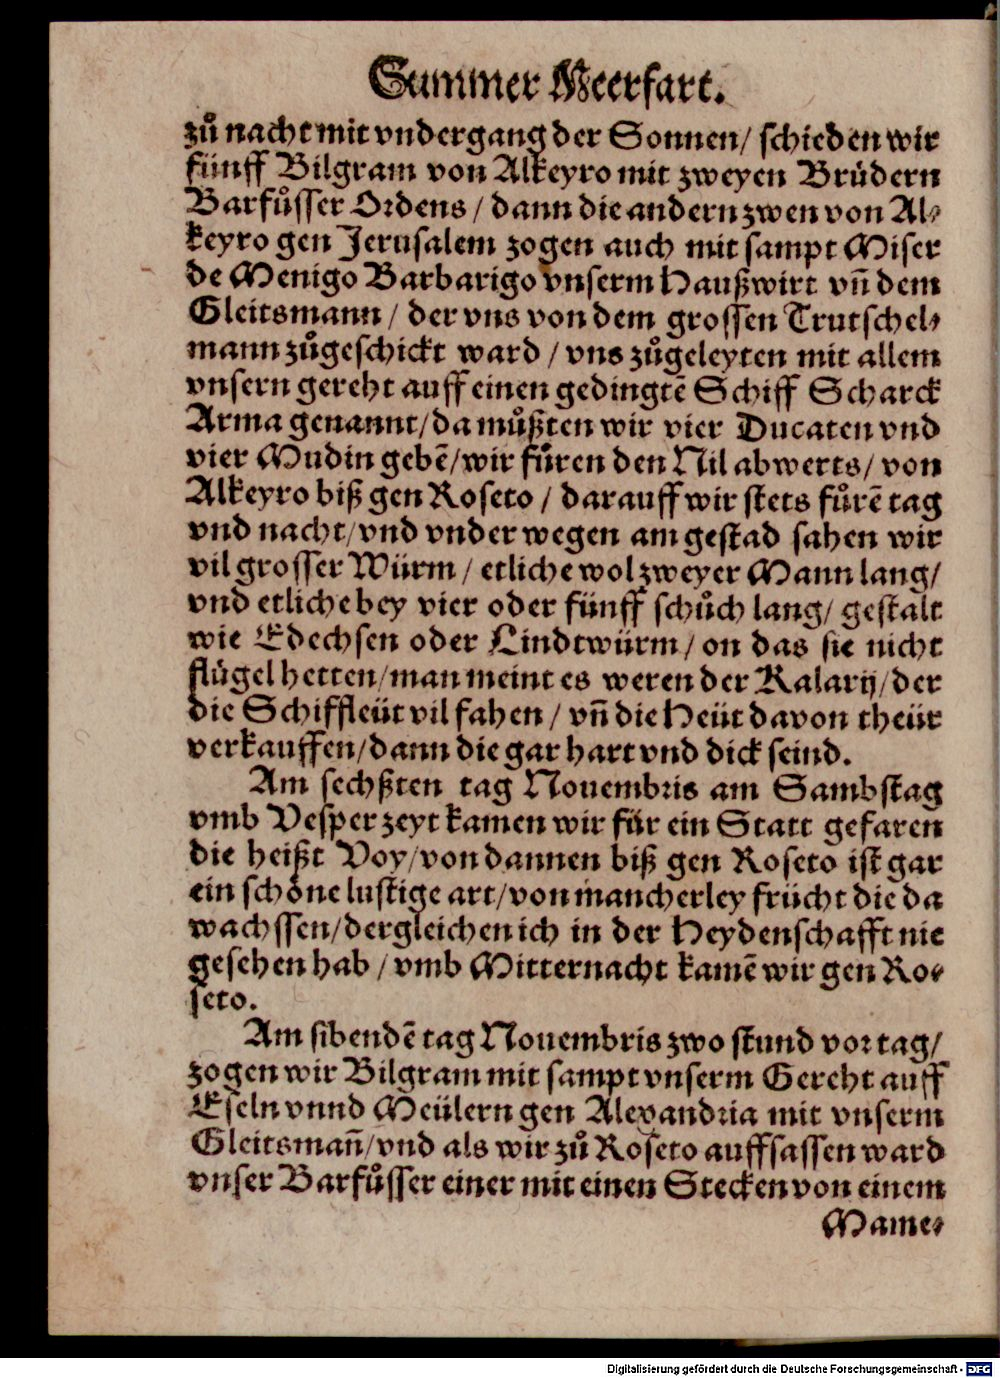 Summer Meerfart.
zů nacht mit vndergang der Sonnen/ schieden wir
fünff Bilgram von Alkeyro mit zweyen Brüdern
Barfůsser Ordens / dann die andern zwen von Al⸗
keyro gen Jerusalem zogen auch mit sampt Miser
de Menigo Barbarigo vnserm Haußwirt vñ dem
Gleitsmann / der vns von dem grossen Trutschel⸗
mann zůgeschickt ward / vns zůgeleyten mit allem
vnsern gereht auff einen gedingtē Schiff Scharck
Arma genannt/ da můßten wir vier Ducaten vnd
vier Mudin gebē/ wir fůren den Nil abwerts/ von
Alkeyro biß gen Roseto / darauff wir stets fůrē tag
vnd nacht/ vnd vnder wegen am gestad sahen wir
vil grosser Würm / etliche wol zweyer Mann lang/
vnd etliche bey vier oder fünff schůch lang/ gestalt
wie Edechsen oder Lindtwürm/ on das sie nicht
flügel hetten/ man meint es weren der Kalarij/ der
die Schiffleüt vil fahen / vñ die Heüt davon theür
verkauffen/ dann die gar hart vnd dick seind.
Am sechßten tag Nouembris am Sambstag
vmb Vesper zeyt kamen wir für ein Statt gefaren
die heißt Voy/ von dannen biß gen Roseto ist gar
ein schöne lustige art/ von mancherley frücht die da
wachssen/ dergleichen ich in der Heydenschafft nie
gesehen hab / vmb Mitternacht kamē wir gen Ro⸗
seto.
Am sibendē tag Nouembris zwo stund vor tag/
zogen wir Bilgram mit sampt vnserm Gereht auff
Eseln vnnd Meülern gen Alexandria mit vnserm
Gleitsmañ/ vnd als wir zů Roseto auffsassen ward
vnser Barfůsser einer mit einen Stecken von einem
Mame⸗
Digitalisierung gefördert durch die Deutsche Forschungsgemeinschaft - DFG